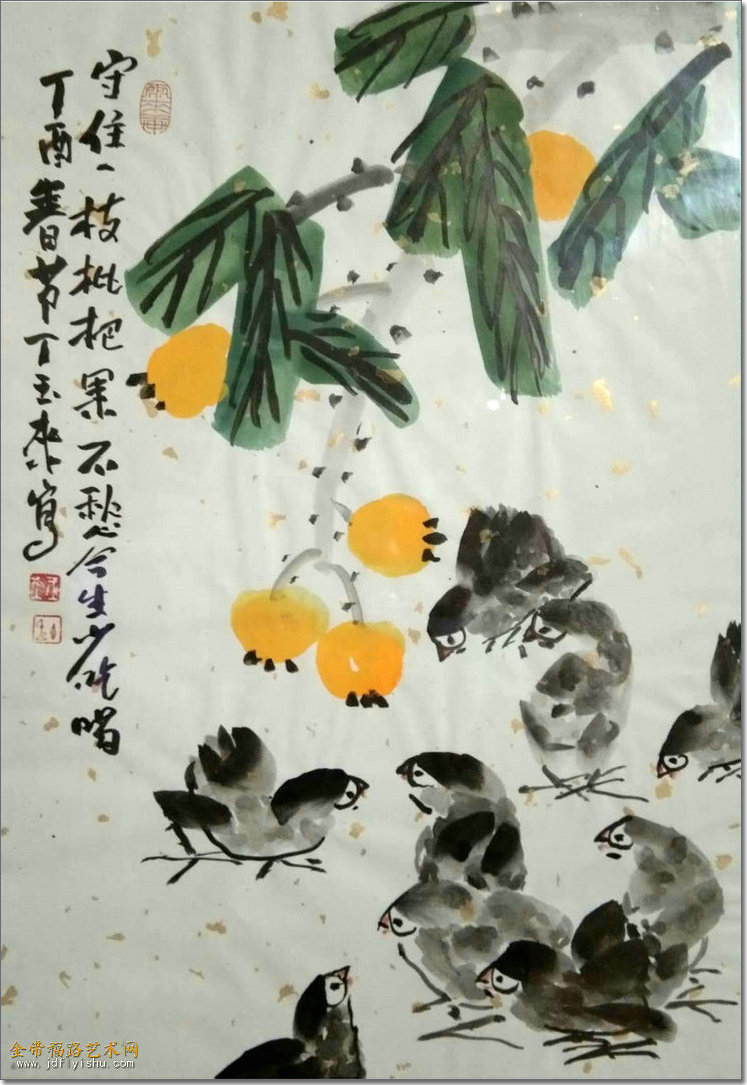 守住一枝枇杷果不愁今生少吃喝
丁酉春节丁玉来写
金带福路艺术网
www.jdflyishu.com